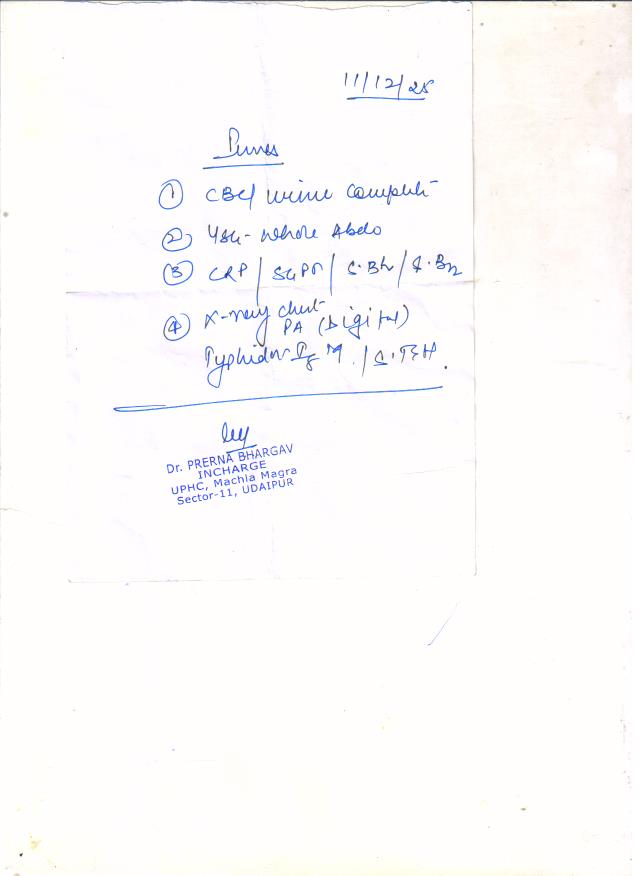 11/12/25
① CBC/ urine complete
② USG - Whole Abdo
③ CRP / SGPT / S. Bil / S. B12
④ X-ray chest
PA (Digital)
Typhidot IgM. / S. TSH.
Dr. PRERNA BHARGAV
INCHARGE
UPHC, Machla Magra
Sector-11, UDAIPUR